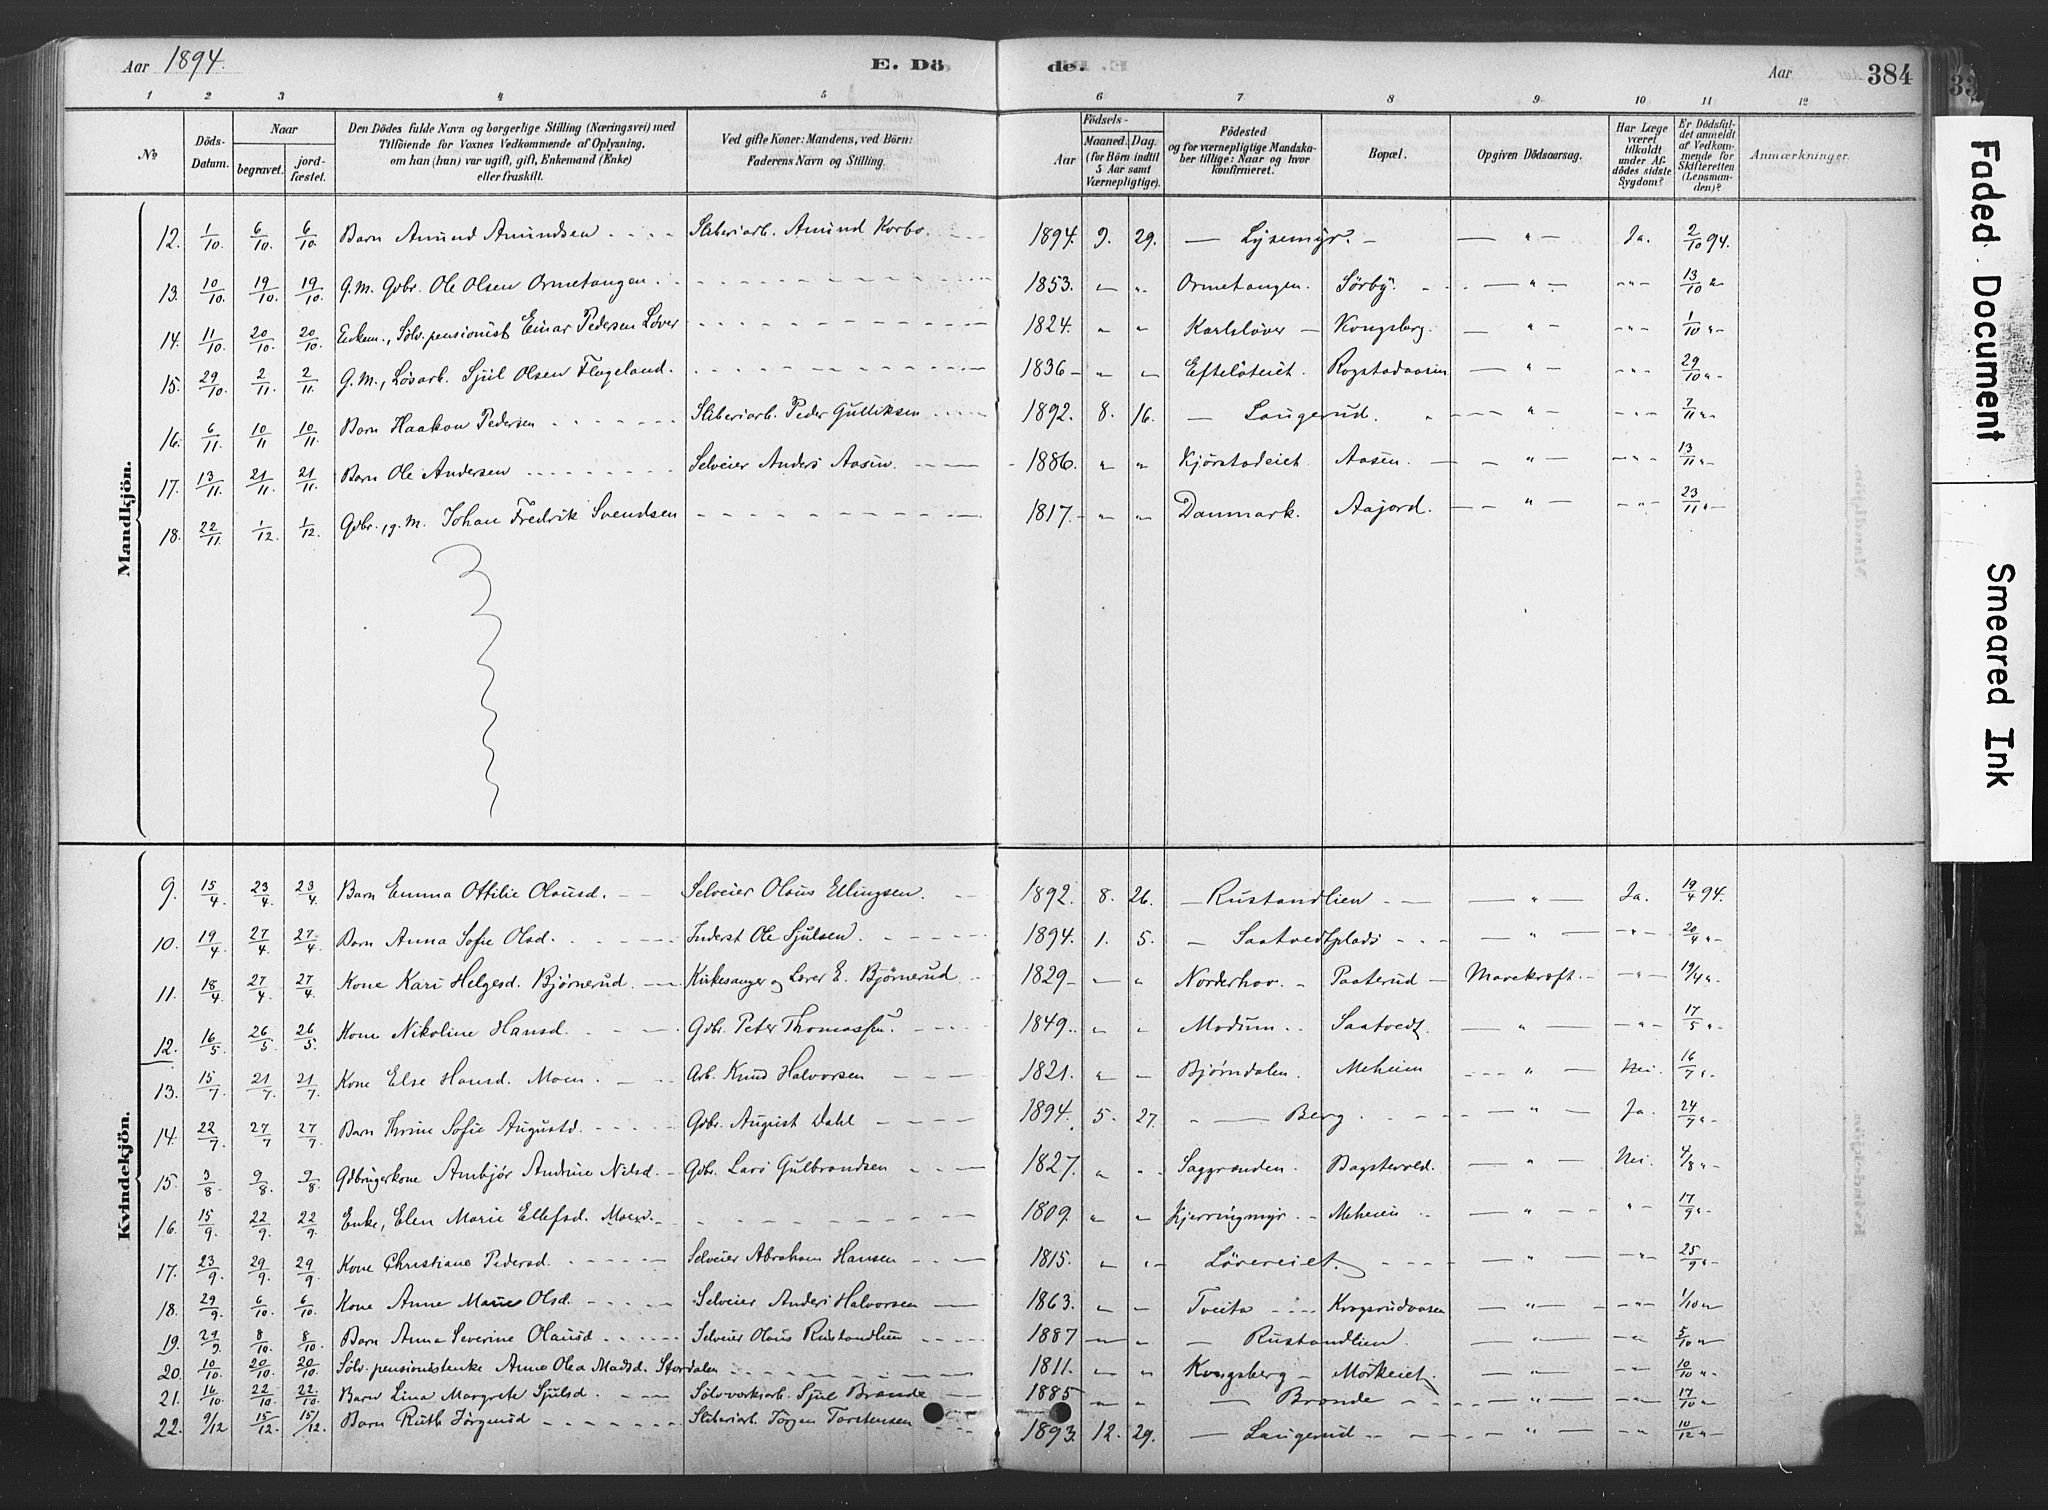 Aar 1894. E. Dö de. Aar 384
1 2 3 4 5 6 7 8 9 10 11 12
No Döds-Datum. Naar begravet. jordfæstet. Den Dödes fulde Navn og borgerlige Stilling (Næringsvei) med Tilföiende for Voxnes Vedkommende af Oplysning, om han (hun) var ugift, gift, Enkemand (Enke) eller fraskilt. Ved gifte Koner: Mandens, ved Börn: Faderens Navn og Stilling. Födsels- Aar Maaned. Dag. (for Börn indtil 5 Aar samt Værnepligtige). Födested og for værnepligtige Mandskaber tillige: Naar og hvor konfirmeret. Bopæl. Opgiven Dödsaarsag. Har Læge været tilkaldt under Afdödes sidste Sygdom? Er Dödsfaldet anmeldt af Vedkommende for Skifteretten (Lensmanden)? Anmærkninger.
Mandkjön.
12. 1/10. 6/10. 6/10. Barn Amund Amundsen Sliberiarb. Amund Korbo. 1894. 9. 29. — Lysemyr. — — " — Ja. 2/10 94.
13. 10/10. 19/10. 19/10. G.M. Gdbr. Ole Olsen Ormetangen. 1853. " " Ormetangen. Sörby. — " — " 13/10 "
14. 11/10. 20/10. 20/10. Enkem., Sölv.pensionist Einar Pedersen Löver 1824. " " Karlslöver — Kongsberg. — " — " 1/10 "
15. 29/10. 2/11. 2/11. G.M., Lösarb. Sjul Olsen Flageland. 1836 — " — Eftelöteiet. Rogstadaasen — " — " 29/10 "
16. 6/11. 10/11 10/11. Barn Haakon Pedersen Sliberiarb. Peder Gulliksen 1892. 8. 16. — Laugerud. " — " — " 7/11 "
17. 13/11. 21/11. 21/11. Barn Ole Andersen Selveier Anders Aasen. 1886. " " Kjörstadeiet. Aasen. — " — " 13/11 "
18. 22/11. 1/12. 1/12. Gdbr., g.M. Johan Fredrik Svendsen 1817. " " Danmark. Aajord. — " — " 23/11 "
Kvindekjön.
9. 15/4. 23/4. 23/4. Barn Emma Ottilie Olausd. Selveier Olaus Ellingsen. 1892. 8. 26. — Rustandlien — " — Ja. 19/4 94.
10. 19/4. 27/4. 27/4. Barn Anna Sofie Olsd. Inderst Ole Sjulsen. 1894. 1. 5. — Saatvedtplads — " — " 20/4 "
11. 18/4. 27/4. 27/4. Kone Kari Helgesd. Bjørnerud. Kirkesanger og Lærer E. Bjørnerud 1829 — " Norderhov. — Paaterud — Mavekræft. — " 19/4 "
12. 16/5. 26/5. 26/5. Kone Nikoline Hansd. Gdbr. Peter Thomassen. 1849. " " Modum. Saatvedt. — " — " 17/5 "
13. 15/7. 21/7. 21/7. Kone Else Hansd. Moen. Arb. Knud Halvorsen 1821. " — Bjørndalen. Meheien " — Nei. 16/7 "
14. 22/7. 27/7 27/7. Barn Trine Sofie Augustd. Gdbr. August Dahl 1894. 5. 27. — Berg. — " — Ja. 24/7 "
15. 3/8. 9/8. 9/8. Gdbrugerkone Anbjør Andrine Nilsd. Gdbr. Lars Gulbrandsen 1827. " " Saggrenden. Bagstevold. — " — Nei. 4/8 "
16. 15/9. 22/9. 22/9. Enke, Elen Marie Ellefsd. Moen. 1809. " " Kjerringmyr. — Meheien — " — " 17/9 "
17. 23/9. 29/9. 29/9. Kone Christiane Pedersd. Selveier Abraham Hansen 1815. " " — Lövereiet. — " — " 25/9 "
18. 29/9. 6/10. 6/10. Kone Anne Marie Olsd. Selveier Anders Halvorsen 1863. " " Tveita Krogsrudaasen — " — " 1/10 "
19. 29/9. 8/10. 8/10. Barn Anna Severine Olausd Selveier Olaus Rustandlien 1887 " " — Rustandlien. — " — " 5/10 "
20. 10/10. 20/10. 20/10. Sölv.pensionistenke Anne Olea Madsd. Stordalen 1811. " " Kongsberg — Mörkeiet. — " — " 10/10 "
21. 16/10. 22/10. 22/10. Barn Lina Margrete Sjulsd. Sölvverksarb. Sjul Brænde 1885 " " — Brænde — " — " 17/10 "
22. 9/12 15/12. 15/12. Barn Ruth Jörgend Sliberiarb. Jörgen Torstensen 1893. 12. 29. — Laugerud — " — " 10/12 "
Faded Document
Smeared Ink